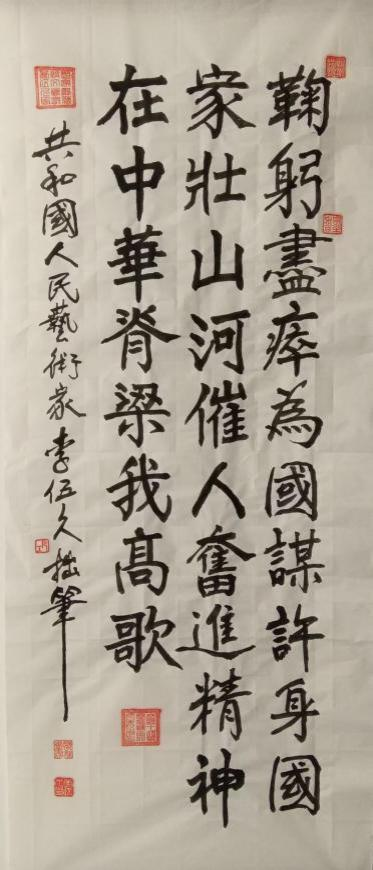 鞠躬盡瘁為國謀許身國
家壯山河催人奮進精神
在中華脊梁我高歌
共和國人民藝術家李伍久拙筆